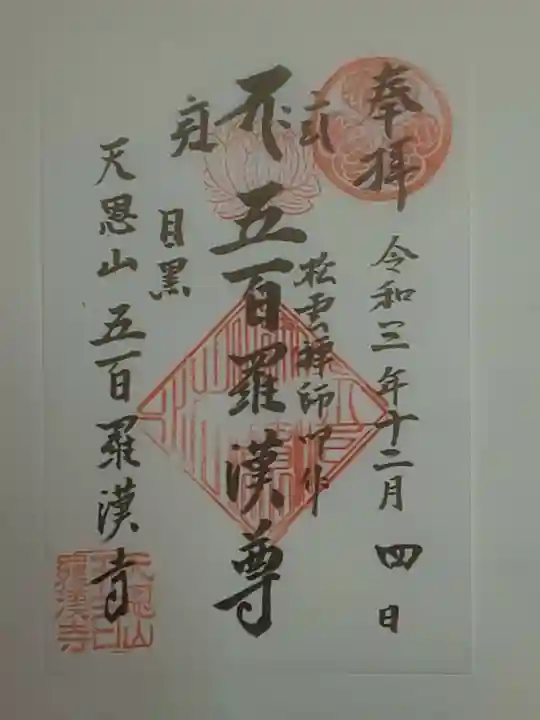 奉拝
令和三年十二月四日
松雲禅師四作
五百羅漢尊
目黒
天恩山五百羅漢寺
天恩山
五百
羅漢寺